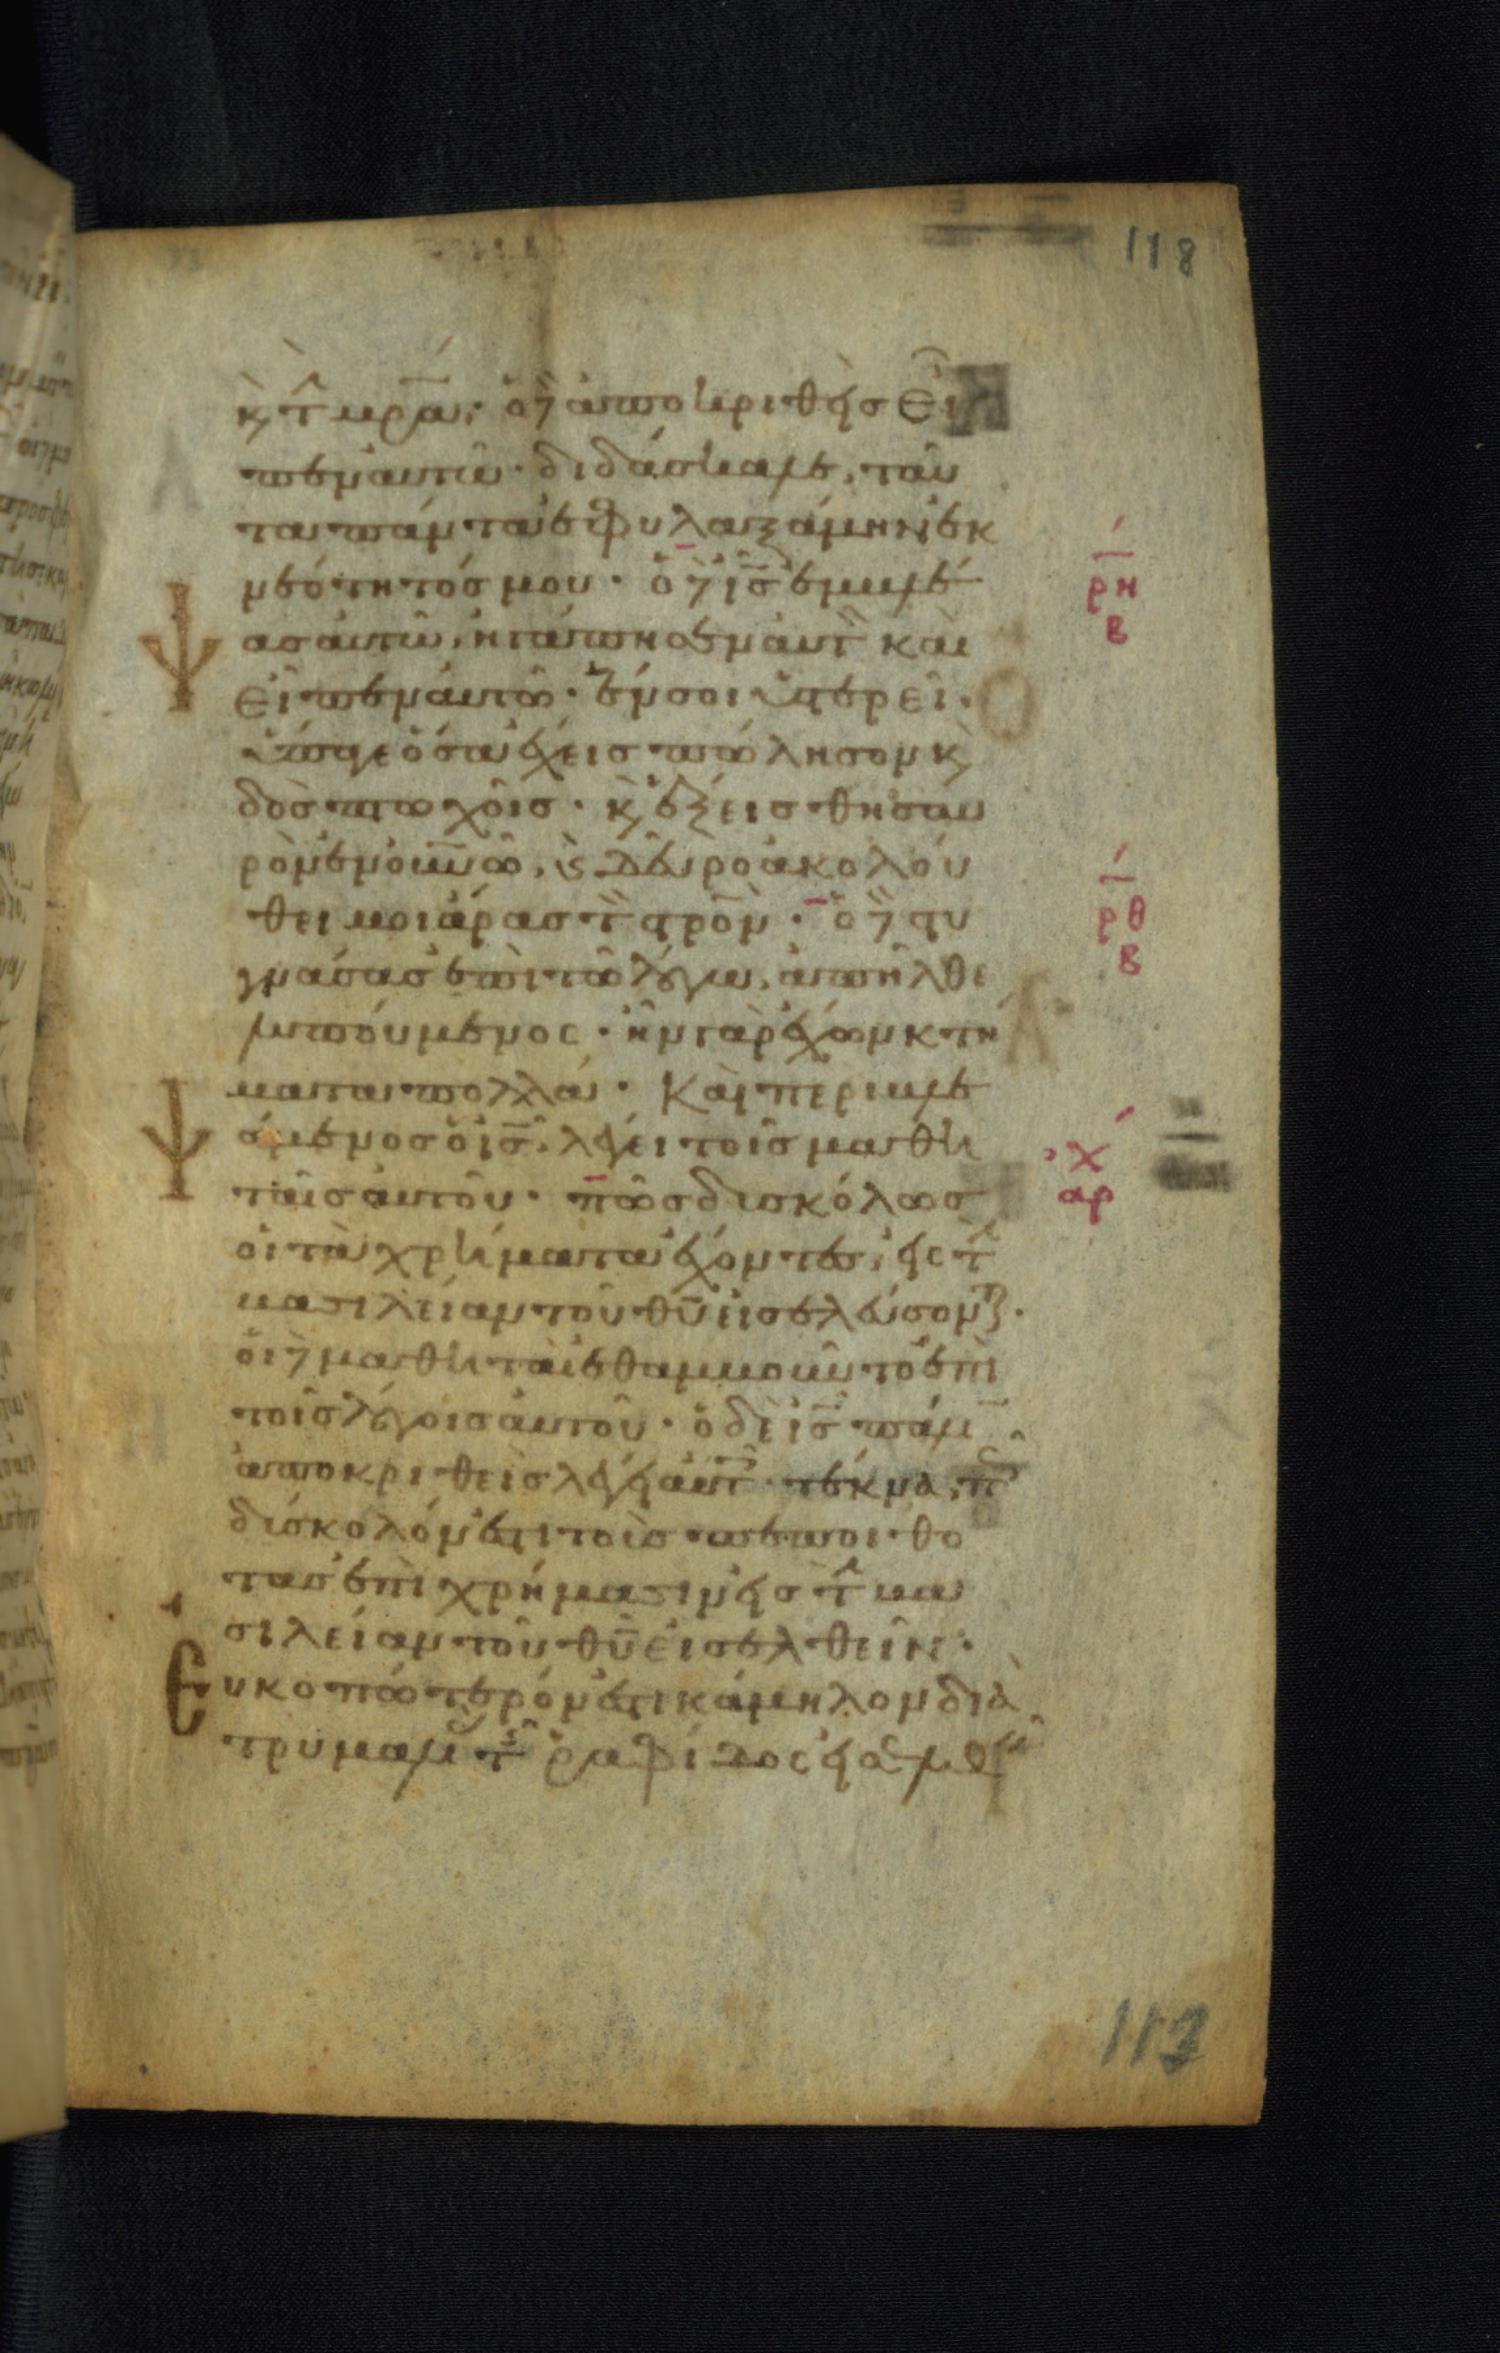 118
κ(αὶ) τ(ὴν) μρ̅α· ὁ δὲ ἀποκριθεὶς εἶ
πεν αὐτῶ· διδάσκαλε, ταῦ
τα πάντα ἐφυλαξάμην ἐκ
νεότητός μου· ὁ δὲ ις̅ ἐμβλέ
ψας αὐτῶ, ἠγάπησεν αὐτ(ὸν) καὶ
εἶπεν αὐτῶ· ἕν σοι ὑστερεῖ·
ὕπαγε ὅσα ἔχεις πώλησον κ(αὶ)
δὸς πτωχοῖς· κ(αὶ) ἕξεις θησαυ
ρὸν ἐν οὐνω̅, κ(αὶ) δεῦρο ἀκολού
θει μοι ἄρας τ(ὸν) στρο̅ν· ὁ δὲ στυ
γνάσας ἐπὶ τῶ λόγω, ἀπῆλθε
λυπούμενος· ἦν γὰρ ἔχων κτή
ματα πολλά· Καὶ περιβλε
ψάμενος ὁ ις̅, λέγει τοῖς μαθη
ταῖς αὐτοῦ· πῶς δυσκόλως
οἱ τὰ χρήματα ἔχοντες, εἰς τ(ὴν)
βασιλείαν τοῦ θυ̅ εἰσελεύσοντ(αι)·
οἱ δὲ μαθηταὶ ἐθαμβοῦντο ἐπὶ
τοῖς λόγοις αὐτοῦ· ὁ δὲ ις̅ πάλιν
ἀποκριθεὶς λέγει αὐτ(οῖς)· τέκνα, π(ῶς)
δύσκολόν ἐστι τοὺς πεποιθό
τας ἐπὶ χρήμασιν εἰς τ(ὴν) βα
σιλείαν τοῦ θυ̅ εἰσελθεῖν·
Ευκοπώτερόν ἐστι κάμηλον διὰ
τρυμαλι(ᾶς) τ(ῆς) ῥαφίδος εἰσελθεῖν
ρη
β
ρθ
β
αρχ
113